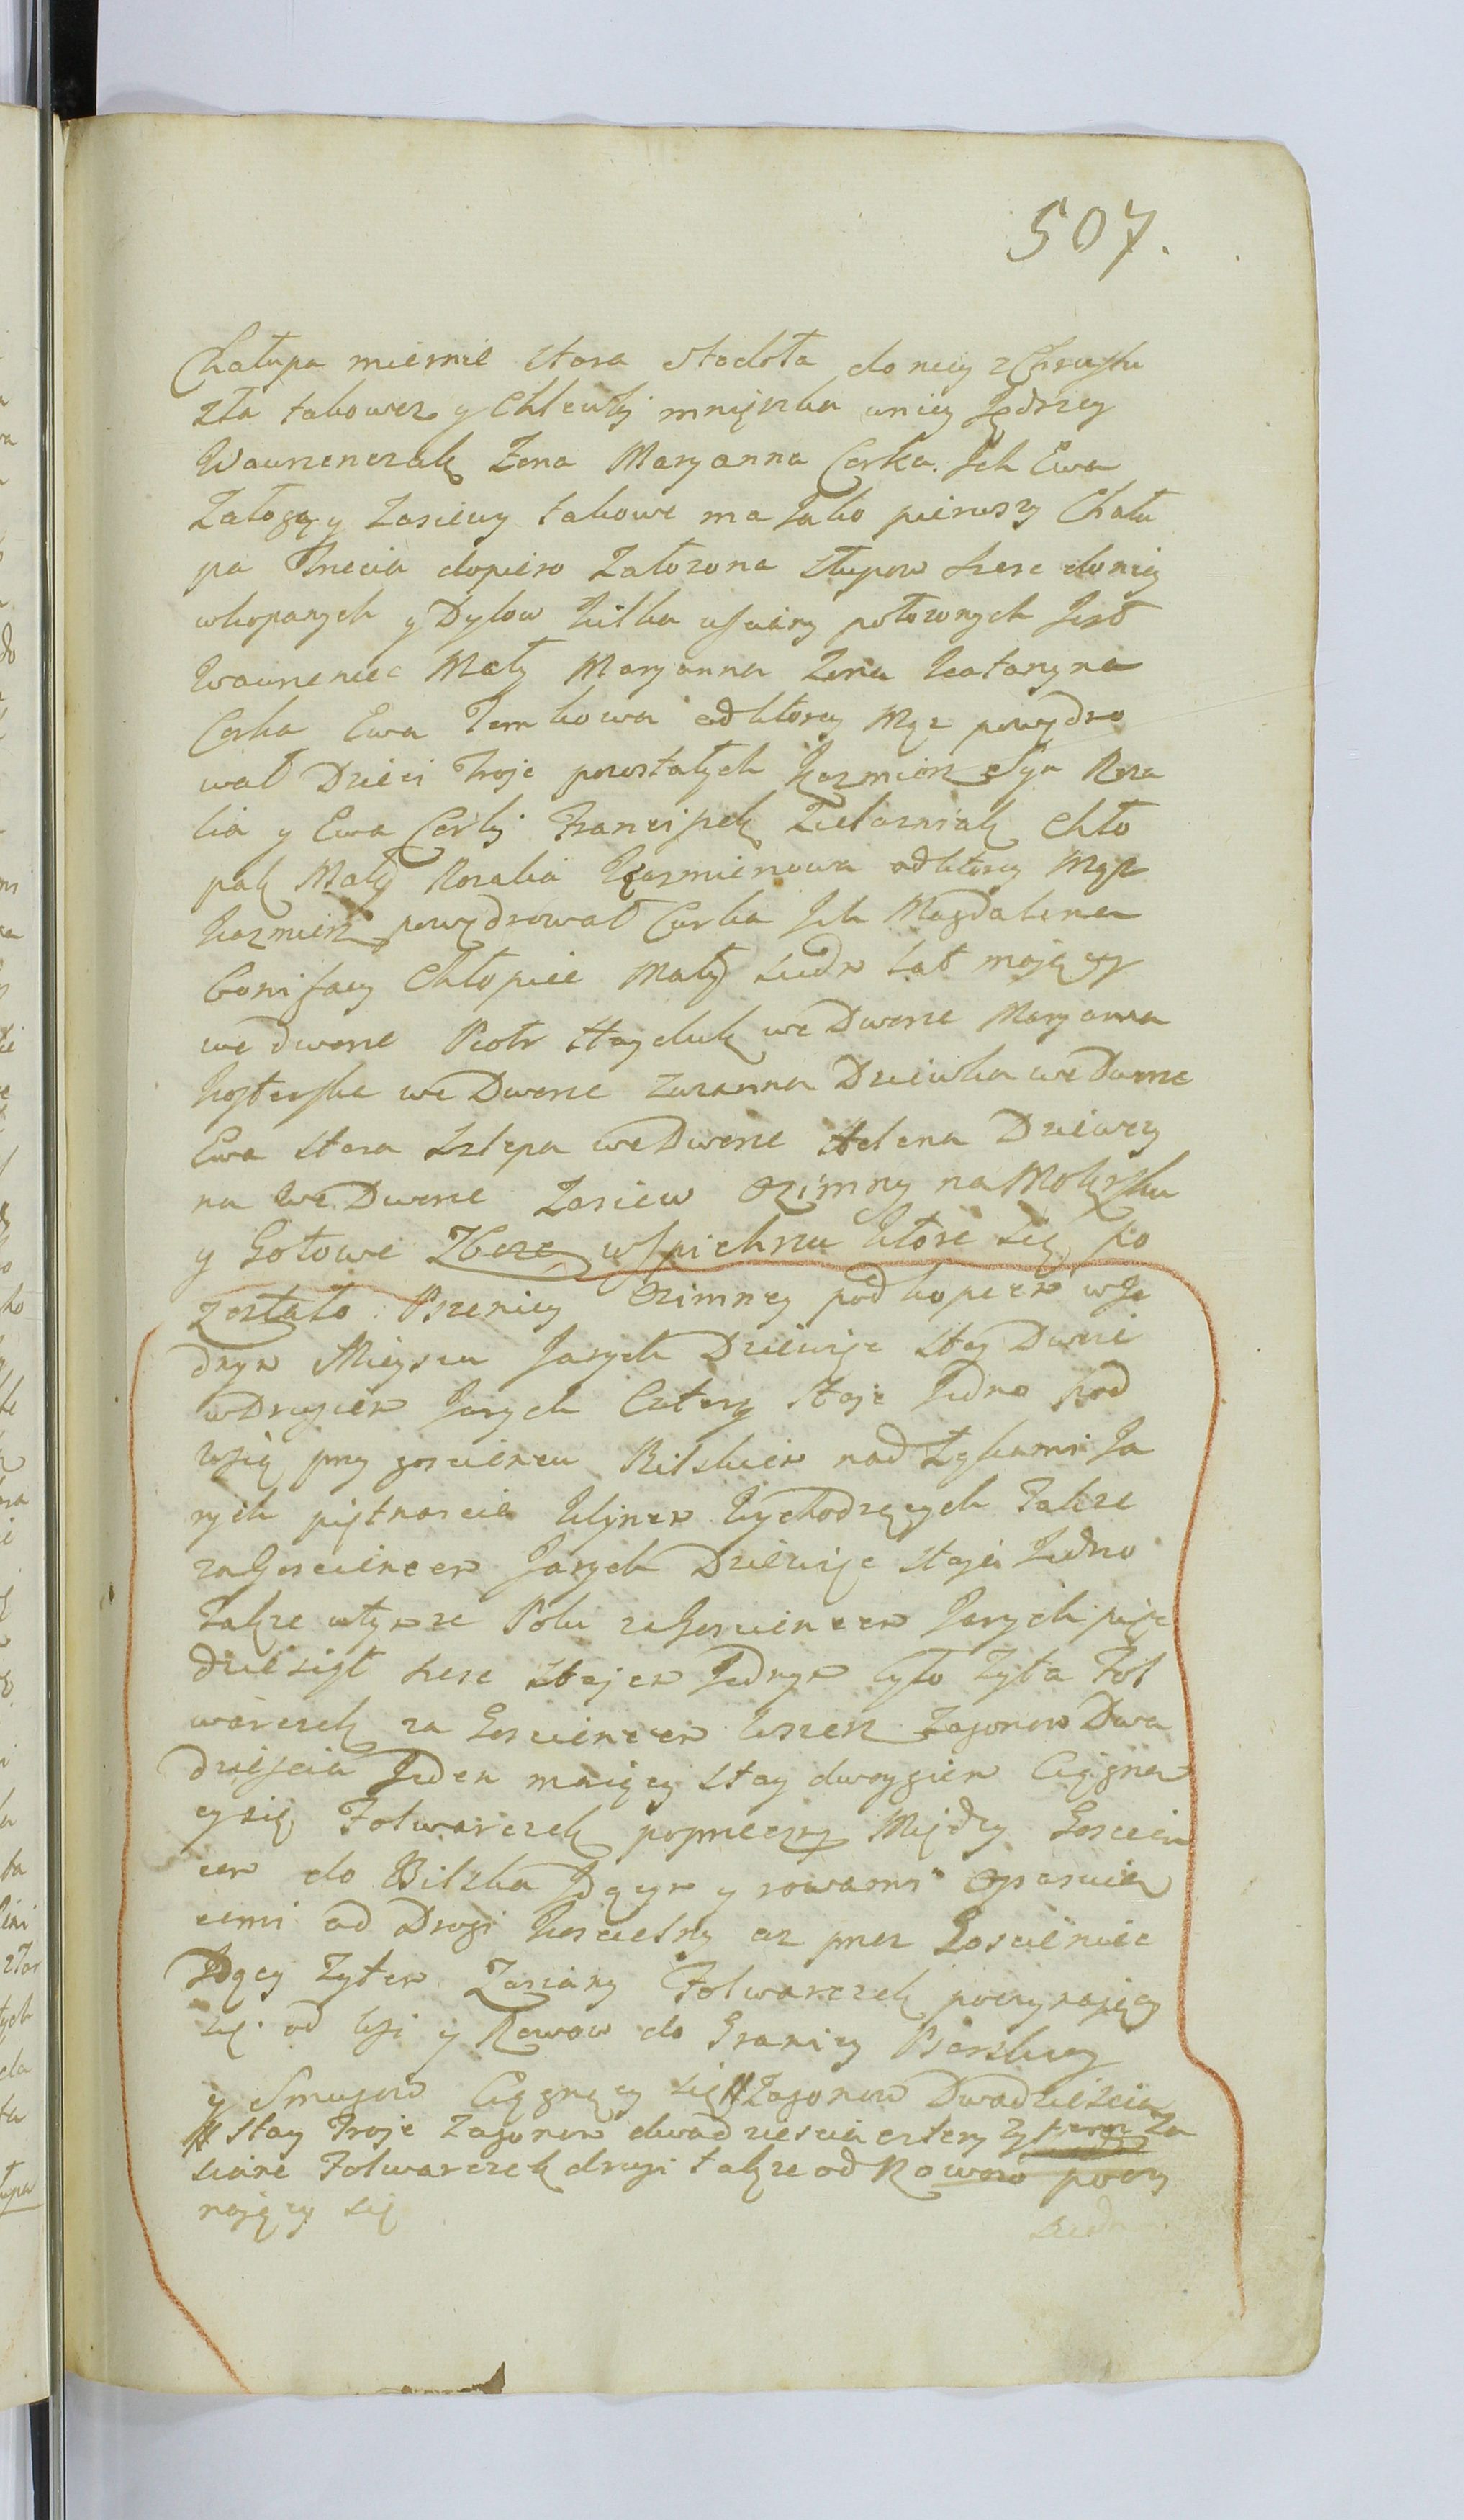 507.
Chałupa miernie stara stodoła do niey z Chrustu
zła takowez y Chlewki mnięszka w niey Jędrzey
Wawrzenczak Zona Maryanna Corka Jch Ewa
Załogę y zasiewy takowe ma Jako pierwszy Chału
pa Trzecia dopiero Załozona słupow szesc do niey
wkopanych y Dylow kilka w sciany połozonych Jest
Wawrzeniec Mały Maryanna Zona Katarzyna
Corka Ewa od ktorey Mąz powędro
wał Dzieci Troje pozostałych Kazmierz Syn Roza
lia y Ewa Corki Franciszek Zielazniak Chło
pak Mały Rozalia Kazmierzowa od ktorey Mąz
Kazmierz powędrował Corka Jch Magdalena
Bonifacy Chłopiec Mały siedm lat mający
we dworze Piotr Hayduk we Dworze Maryanna
we Dworze Zuzanna Dziewka we Dworze
Ewa stara szlepa we Dworze Helena Dziewczy
na we Dworze Zasiew ozimny na
y Gotowe Zboze w spichrzu ktore się po
zostało Pszenicy ozimney pod kopcem w Je
dnym Mieyscu Jarych Dziewięc stay Dwoie
w Drugiem Jarych Cztery staje Jedno pod
wsią przy goscincu Bilskiem nad Ja
rych piętnascie klinem wychodzących Takze
za Goscincem Jarych Dziewięc staje Jedno
Takze w tymze Polu za Goscincem Jarych pięc
dziesiąt szesc stajem Jednym tylo Zyta Fol
warczek za Goscincem wszerz Zagonow Dwa
dziescia Jeden maiący stay dwoygiem Ciągnon
cy się Folwarczek poprzeczny Między Goscin
cem do Bilska Jdącym y rowami
cemi od Drogi Koscielny az przez Gosciniec
Jdący Zytem Zasiany Folwarczek poczynający
się od wsi y Rowow do Granicy
y Smugow Ciągnący się # Zagonow Dwadziescia
# stay Troje Zagonow dwadziescia cztery Zytem Za
siane Folwarczek drugi takze od Rowow poczy
nający się
siedm